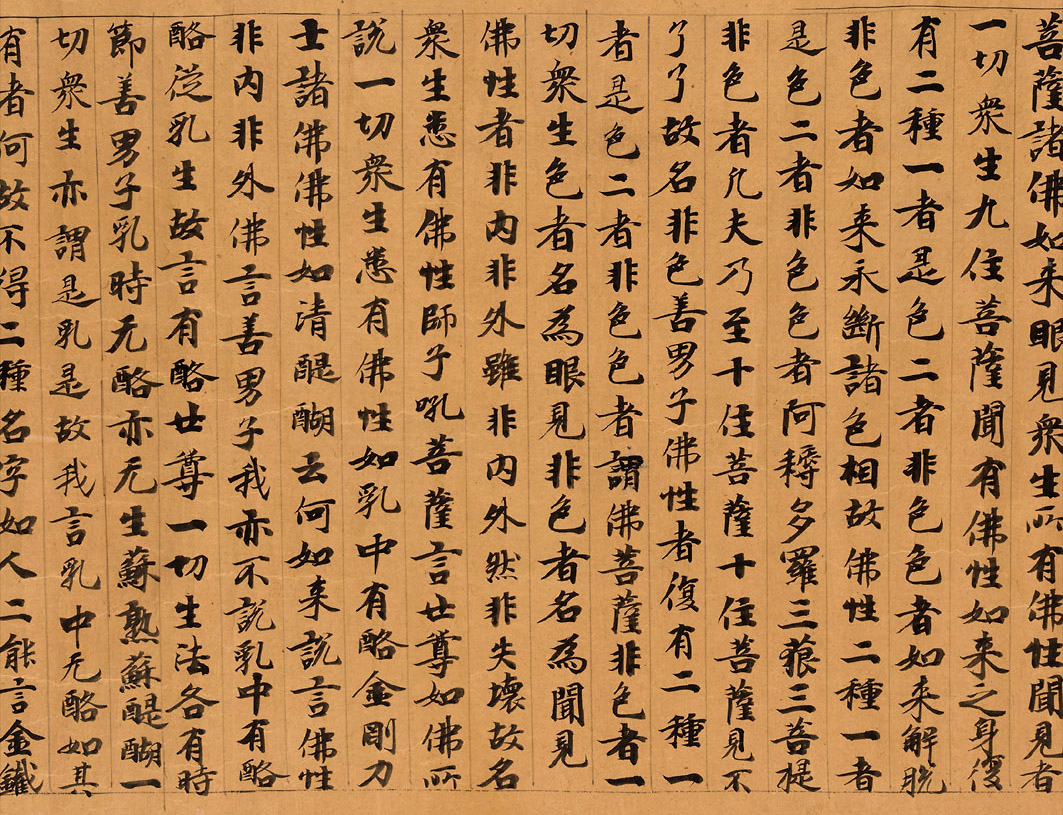 菩薩諸佛如来眼見衆生所有佛性聞見者
一切衆生九住菩薩聞有佛性如来之身復
有二種一者是色二者非色色者如来解脱
非色者如来永斷諸色相故佛性二種一者
是色二者非色色者阿耨多羅三藐三菩提
非色者凡夫乃至十住菩薩十住菩薩見不
了了故名非色善男子佛性者復有二種一
者是色二者非色色者謂佛菩薩非色者一
切衆生色者名為眼見非色者名為聞見
佛性者非内非外雖非内外然非失壞故名
衆生悉有佛性師子吼菩薩言世尊如佛所
說一切衆生悉有佛性如乳中有酪金剛力
士諸佛佛性如清醍醐云何如来說言佛性
非内非外佛言善男子我亦不說乳中有酪
酪從乳生故言有酪世尊一切生法各有時
節善男子乳時无酪亦无生蘇熟蘇醍醐一
切衆生亦謂是乳是故我言乳中无酪如其
有者何故不得二種名字如人二能言金鐵